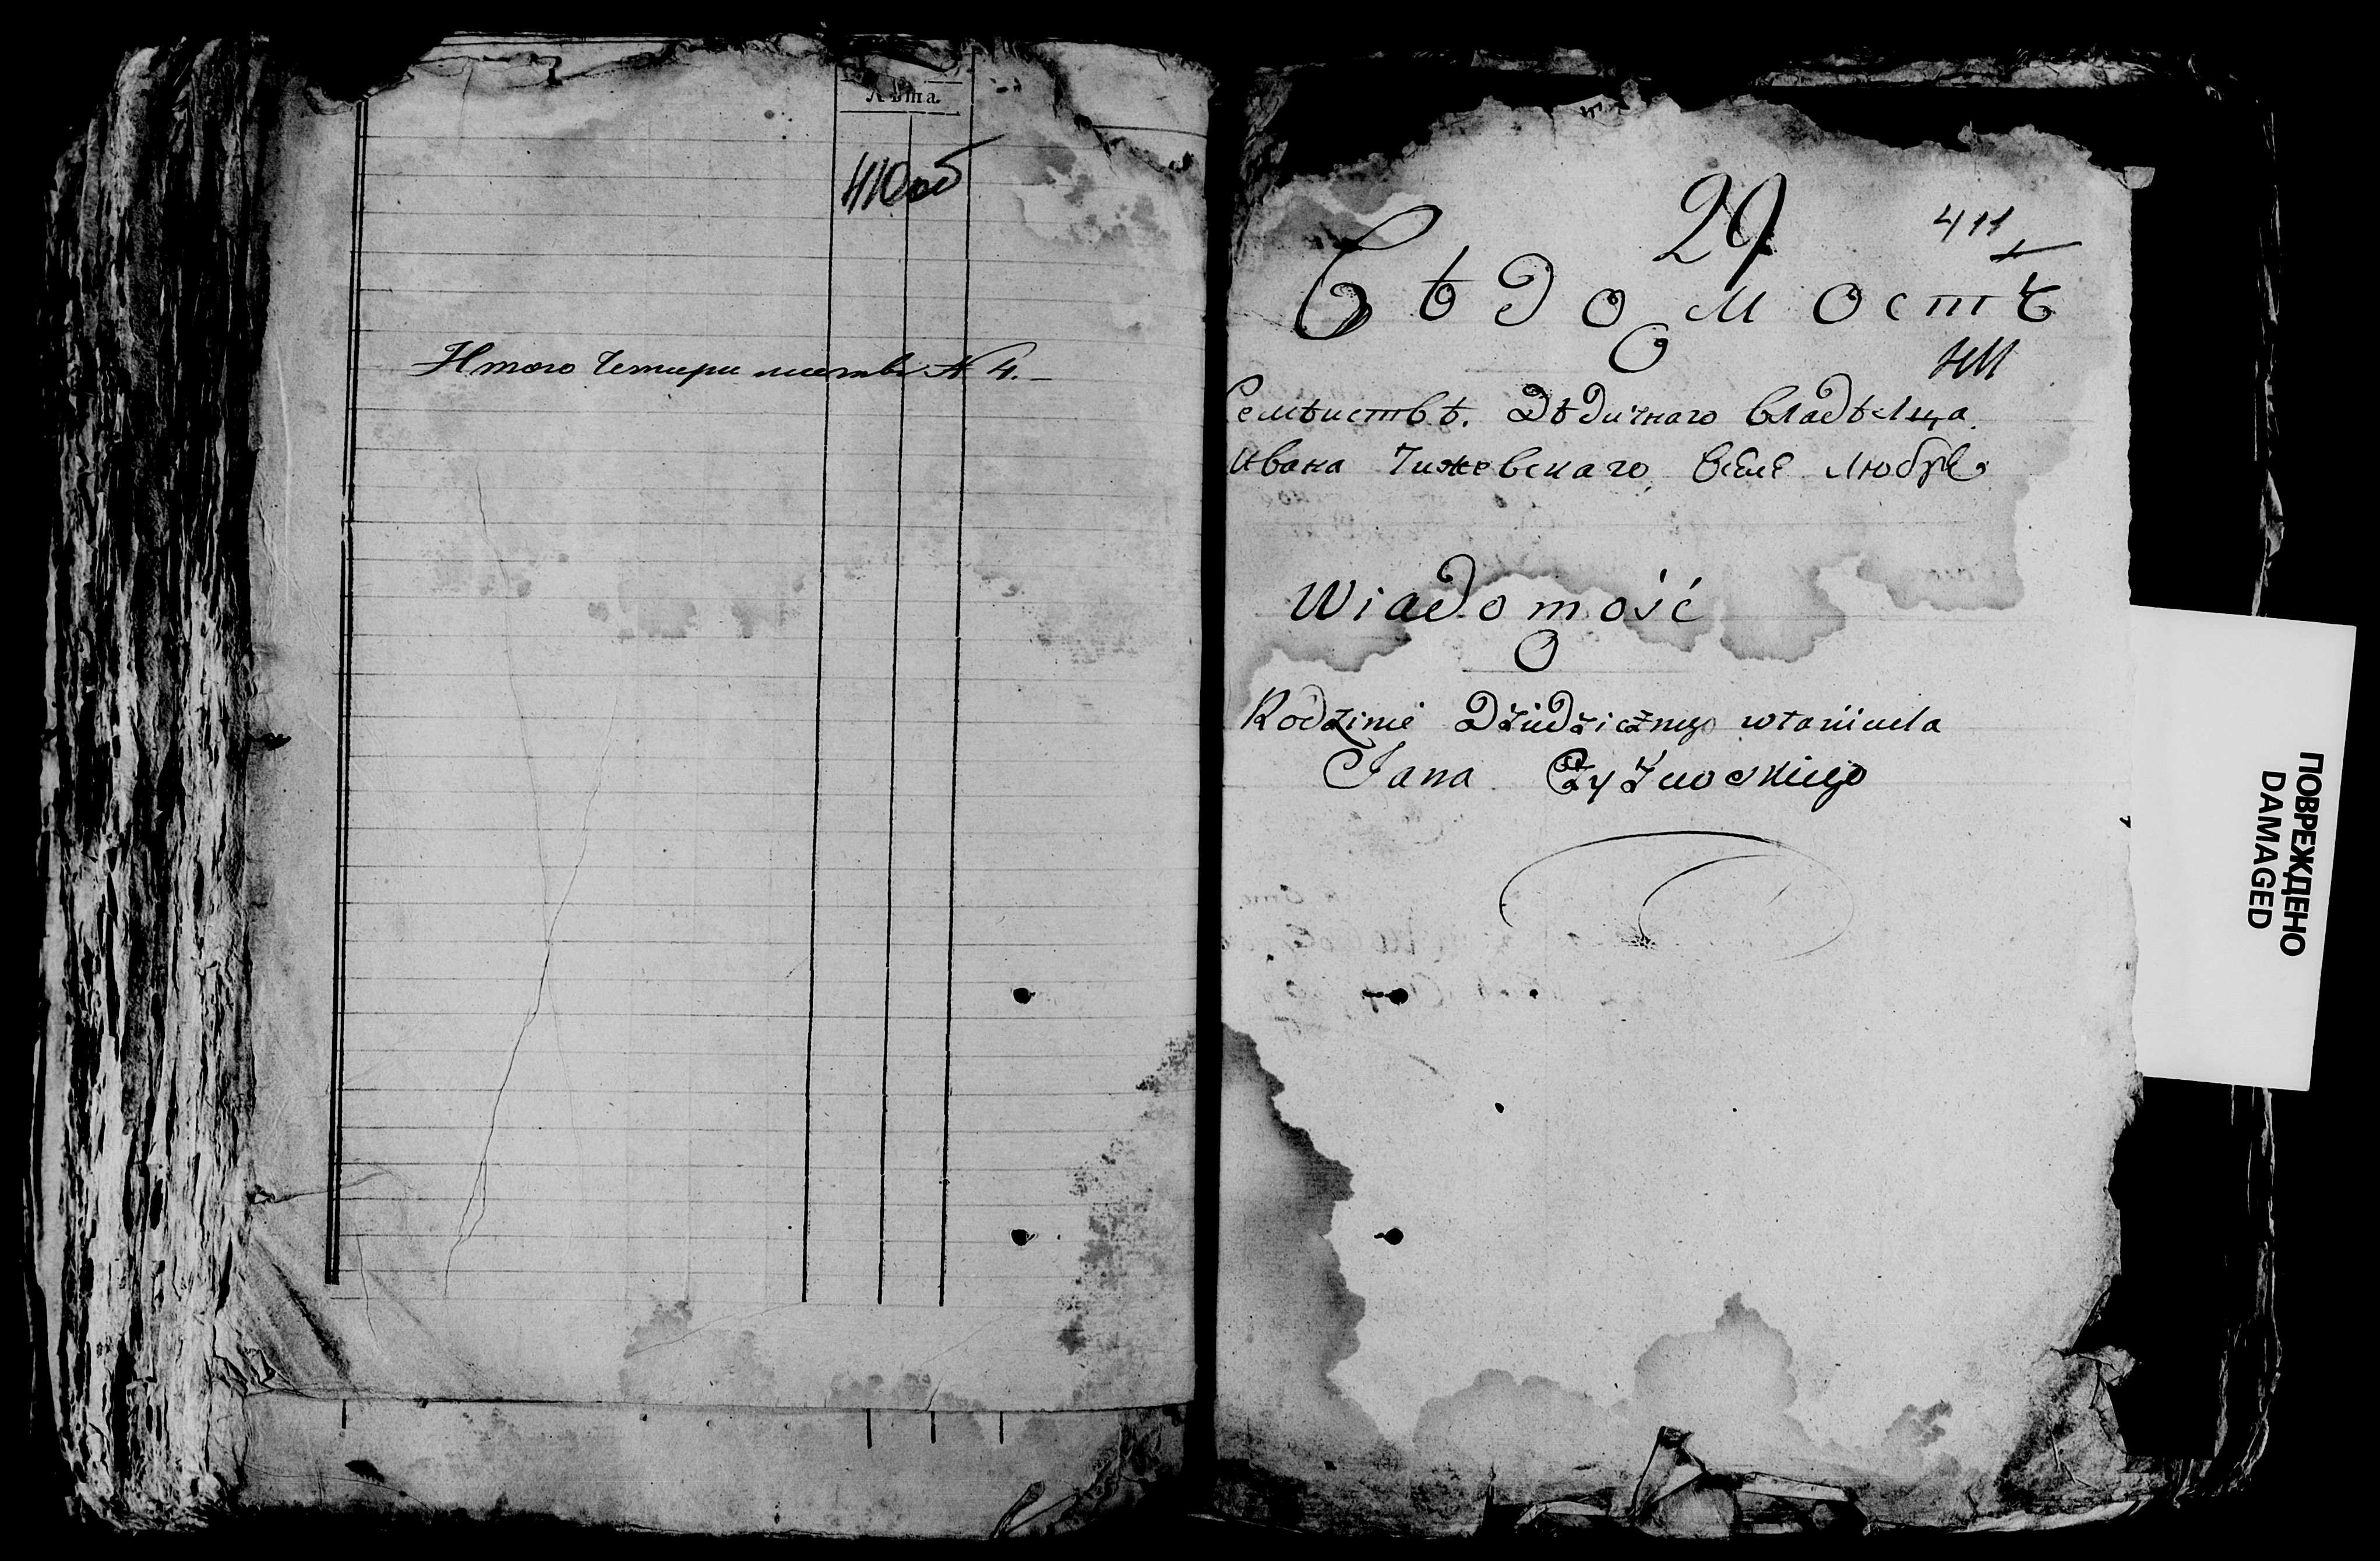 Лѣта.
410об
Итого Четыри листа № 4.
29
411
Вѣдомостъ
О
411
Семѣиствѣ. Дѣдичнаго владѣлца.
Ивана Чижевскаго, Вселѣ Любре
Wiadomość
O
Rodzinie Dziedzicznego właściciela
Jana Czyżewskiego
ПОВРЕЖДЕНО
DAMAGED